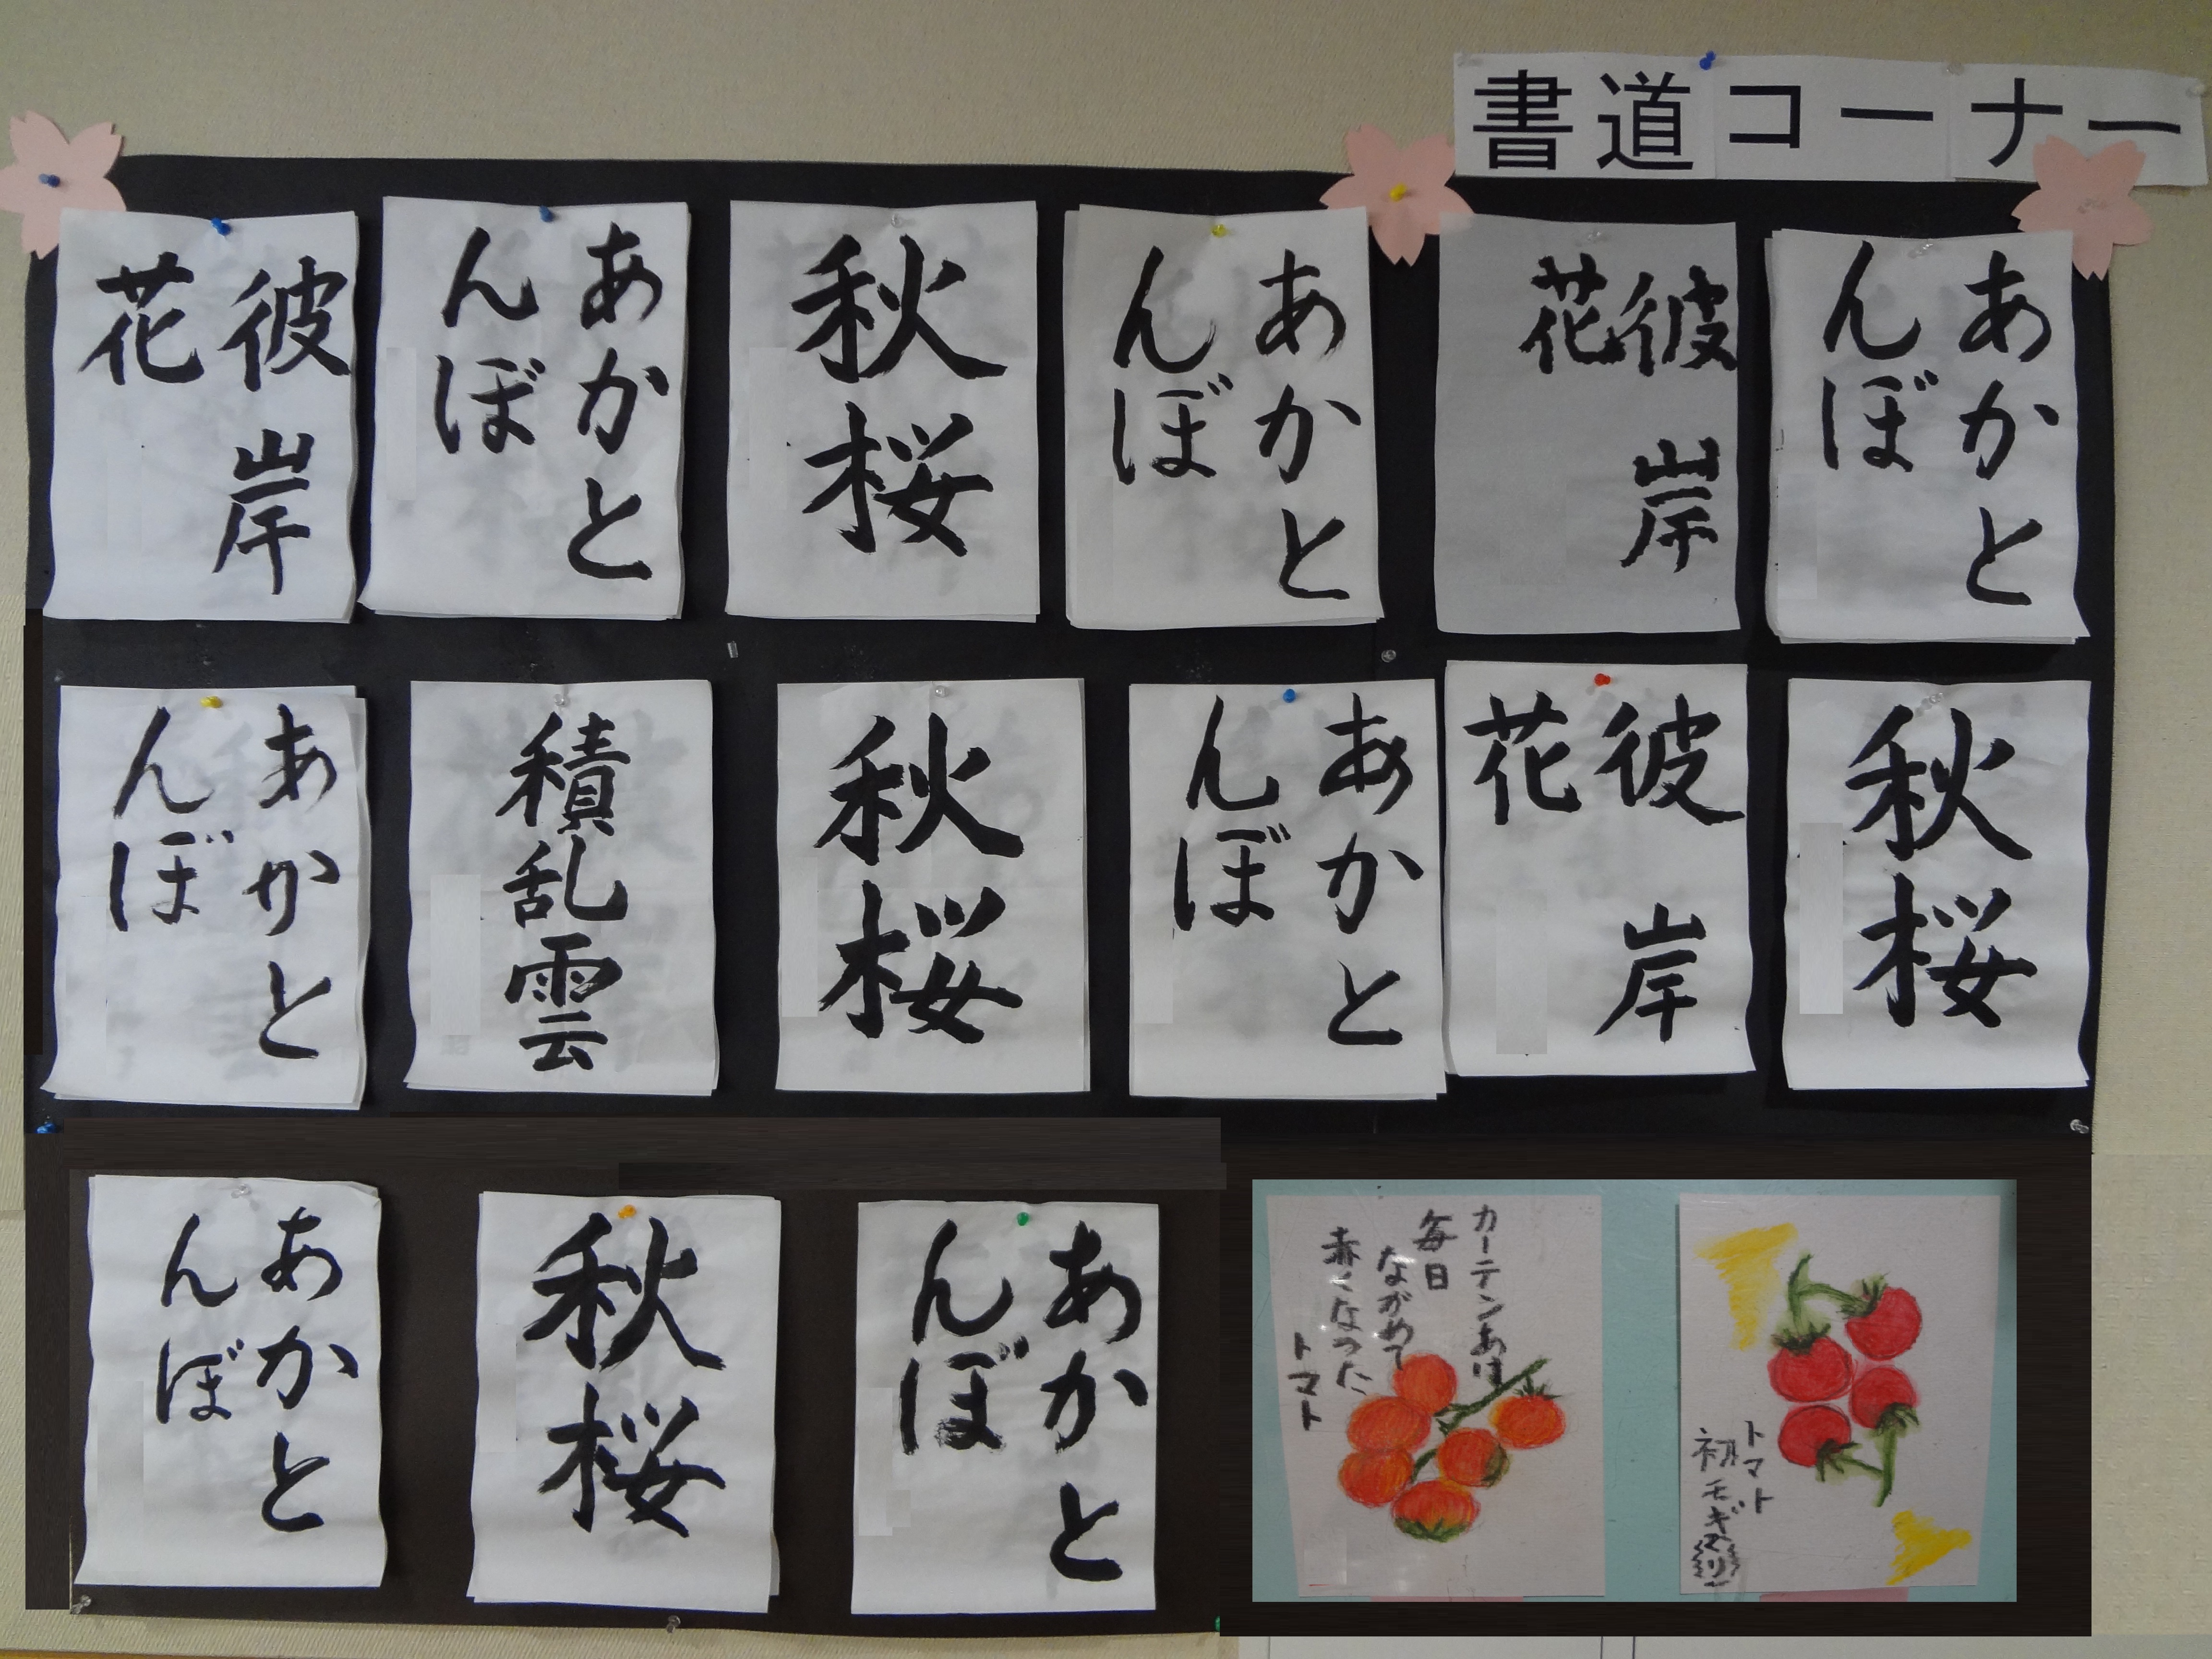 書道コーナー
彼岸
花
あかと
んぼ
秋桜
あかと
んぼ
彼岸
花
あかと
んぼ
あかと
んぼ
積乱雲
秋桜
あかと
んぼ
彼岸
花
秋桜
あかと
んぼ
秋桜
あかと
んぼ
カーテンあけ
毎日
ながめて
赤くなった
トマト
トマト
初モギ